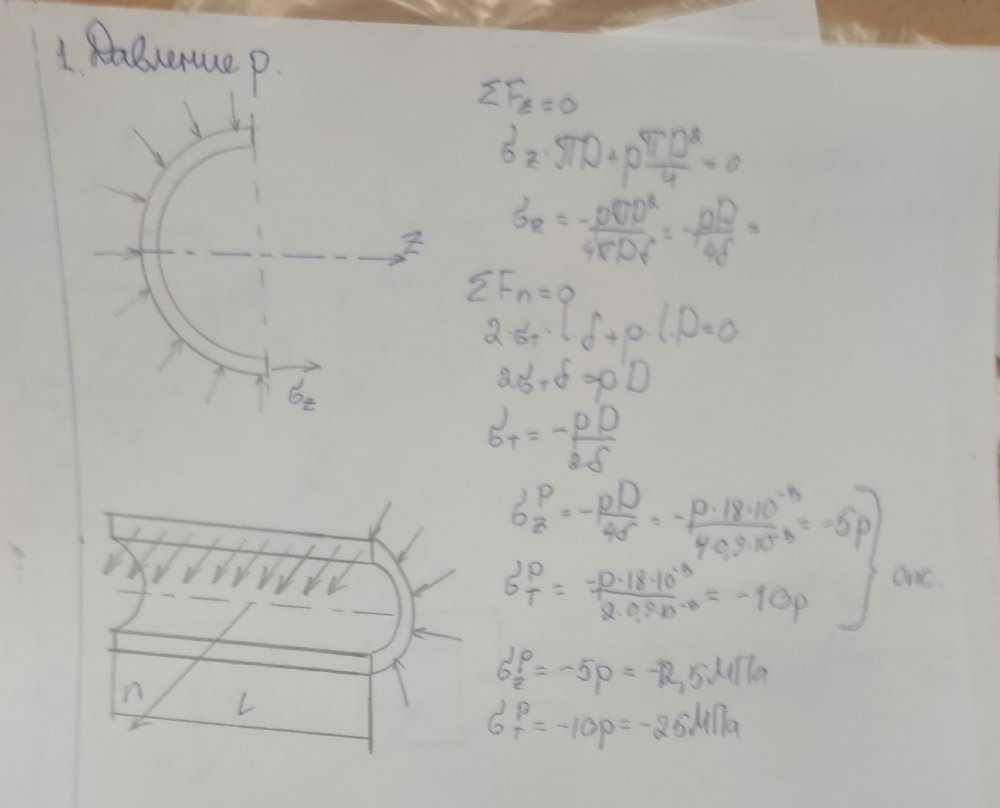 1. Давление p.
ΣFz = 0
σz · πD + p πD²/4 = 0
σz = -pπD²/4πDδ = -pD/4δ =
ΣFn = 0
2·σт · l·δ + p·l·D = 0
2σтδ = pD
σт = -pD/2δ
σz^p = -pD/4δ = -p·18·10⁻³/4·0,9·10⁻³ = -5p
σт^p = -p·18·10⁻³/2·0,9·10⁻³ = -10p
σz^p = -5p = -12,5 МПа
σт^p = -10p = -25 МПа
z
σz
n
L